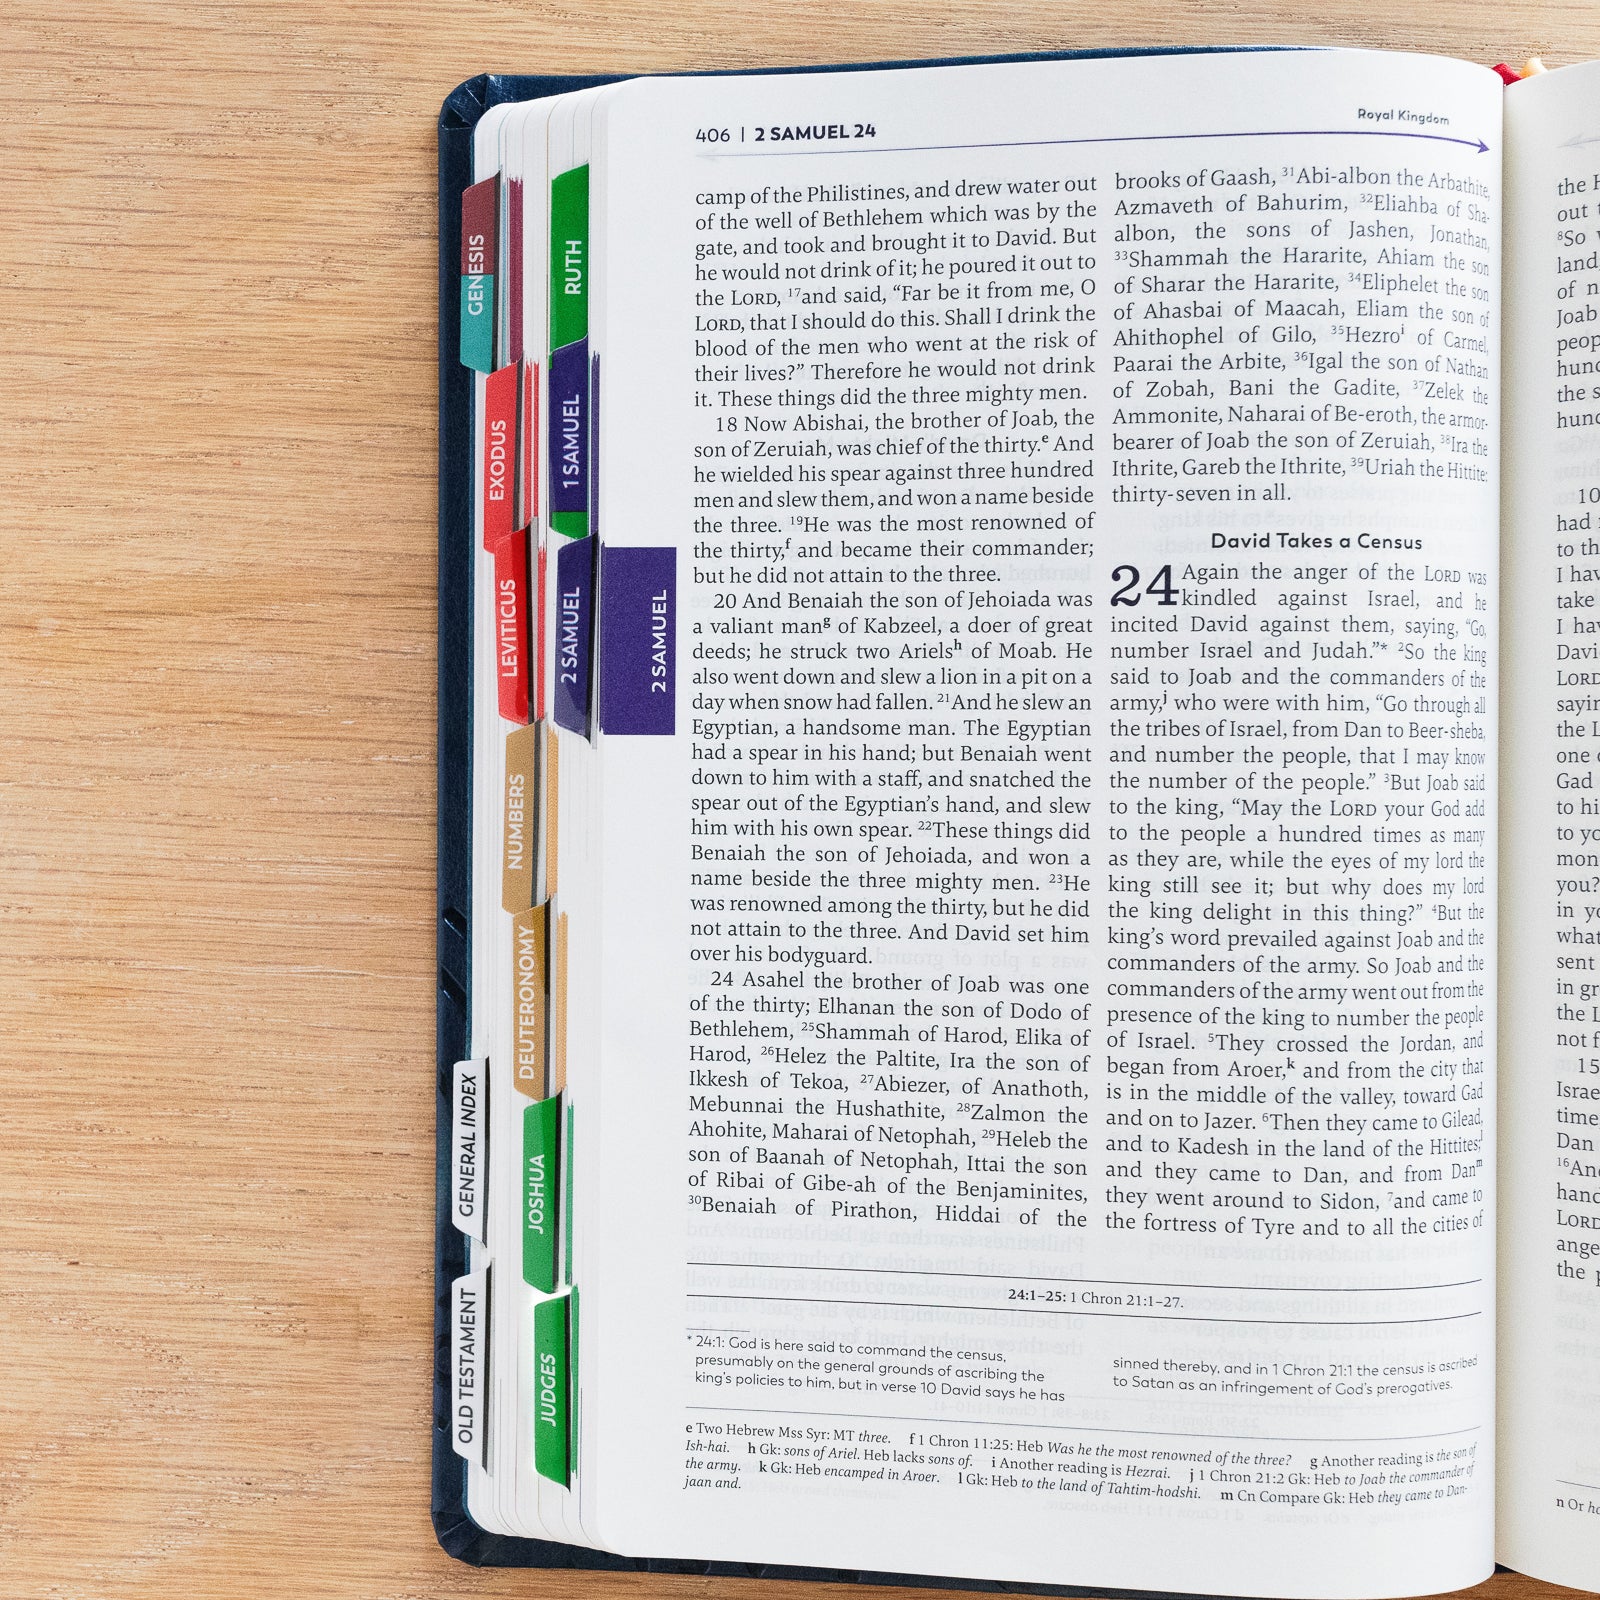 406 | 2 SAMUEL 24
Royal Kingdom
camp of the Philistines, and drew water out
of the well of Bethlehem which was by the
gate, and took and brought it to David. But
he would not drink of it; he poured it out to
the LORD, 17and said, “Far be it from me, O
LORD, that I should do this. Shall I drink the
blood of the men who went at the risk of
their lives?” Therefore he would not drink
it. These things did the three mighty men.
18 Now Abishai, the brother of Joab, the
son of Zeruiah, was chief of the thirty.e And
he wielded his spear against three hundred
men and slew them, and won a name beside
the three. 19He was the most renowned of
the thirty,f and became their commander;
but he did not attain to the three.
20 And Benaiah the son of Jehoiada was
a valiant mang of Kabzeel, a doer of great
deeds; he struck two Arielsh of Moab. He
also went down and slew a lion in a pit on a
day when snow had fallen. 21And he slew an
Egyptian, a handsome man. The Egyptian
had a spear in his hand; but Benaiah went
down to him with a staff, and snatched the
spear out of the Egyptian’s hand, and slew
him with his own spear. 22These things did
Benaiah the son of Jehoiada, and won a
name beside the three mighty men. 23He
was renowned among the thirty, but he did
not attain to the three. And David set him
over his bodyguard.
24 Asahel the brother of Joab was one
of the thirty; Elhanan the son of Dodo of
Bethlehem, 25Shammah of Harod, Elika of
Harod, 26Helez the Paltite, Ira the son of
Ikkesh of Tekoa, 27Abiezer, of Anathoth,
Mebunnai the Hushathite, 28Zalmon the
Ahohite, Maharai of Netophah, 29Heleb the
son of Baanah of Netophah, Ittai the son
of Ribai of Gibe-ah of the Benjaminites,
30Benaiah of Pirathon, Hiddai of the
brooks of Gaash, 31Abi-albon the Arbathite,
Azmaveth of Bahurim, 32Eliahba of Sha-
albon, the sons of Jashen, Jonathan,
33Shammah the Hararite, Ahiam the son
of Sharar the Hararite, 34Eliphelet the son
of Ahasbai of Maacah, Eliam the son of
Ahithophel of Gilo, 35Hezroi of Carmel,
Paarai the Arbite, 36Igal the son of Nathan
of Zobah, Bani the Gadite, 37Zelek the
Ammonite, Naharai of Be-eroth, the armor-
bearer of Joab the son of Zeruiah, 38Ira the
Ithrite, Gareb the Ithrite, 39Uriah the Hittite:
thirty-seven in all.
David Takes a Census
24 Again the anger of the LORD was
kindled against Israel, and he
incited David against them, saying, “Go,
number Israel and Judah.”* 2So the king
said to Joab and the commanders of the
army,j who were with him, “Go through all
the tribes of Israel, from Dan to Beer-sheba,
and number the people, that I may know
the number of the people.” 3But Joab said
to the king, “May the LORD your God add
to the people a hundred times as many
as they are, while the eyes of my lord the
king still see it; but why does my lord
the king delight in this thing?” 4But the
king’s word prevailed against Joab and the
commanders of the army. So Joab and the
commanders of the army went out from the
presence of the king to number the people
of Israel. 5They crossed the Jordan, and
began from Aroer,k and from the city that
is in the middle of the valley, toward Gad
and on to Jazer. 6Then they came to Gilead,
and to Kadesh in the land of the Hittites;l
and they came to Dan, and from Danm
they went around to Sidon, 7and came to
the fortress of Tyre and to all the cities of
24:1–25: 1 Chron 21:1–27.
* 24:1: God is here said to command the census,
presumably on the general grounds of ascribing the
king’s policies to him, but in verse 10 David says he has
sinned thereby, and in 1 Chron 21:1 the census is ascribed
to Satan as an infringement of God’s prerogatives.
e Two Hebrew Mss Syr: MT three. f 1 Chron 11:25: Heb Was he the most renowned of the three? g Another reading is the son of
Ish-hai. h Gk: sons of Ariel. Heb lacks sons of. i Another reading is Hezrai. j 1 Chron 21:2 Gk: Heb to Joab the commander of
the army. k Gk: Heb encamped in Aroer. l Gk: Heb to the land of Tahtim-hodshi. m Cn Compare Gk: Heb they came to Dan-
jaan and.
GENESIS
EXODUS
LEVITICUS
NUMBERS
DEUTERONOMY
JOSHUA
JUDGES
RUTH
1 SAMUEL
2 SAMUEL
2 SAMUEL
GENERAL INDEX
OLD TESTAMENT
the
out
8So
land,
of n
Joab
peop
hund
the s
hund
10
had
to th
I hav
take
I hav
Davi
LORD
sayin
the L
one
Gad
to hi
to yo
mon
you?
in yo
what
sent
in gr
the L
not f
15
Israe
time,
Dan
16An
hand
LORD
ange
the
n Or